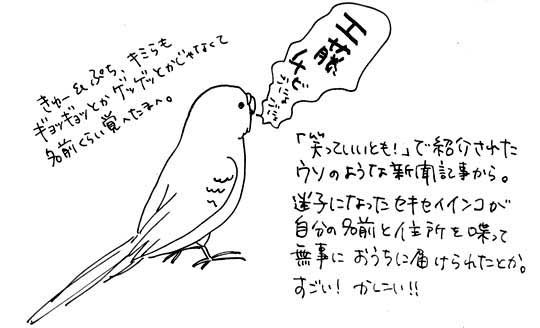 きゅー&ぷち、キミらも
ギョッギョッとかゲッゲッとかじゃなくて
名前くらい覚へたまへ。
工藤
「笑っていいとも!」で紹介された
ウソのような新聞記事から。
迷子になったセキセイインコが
自分の名前と住所を喋って
無事におうちに届けられたとか。
すごい!かしこい!!